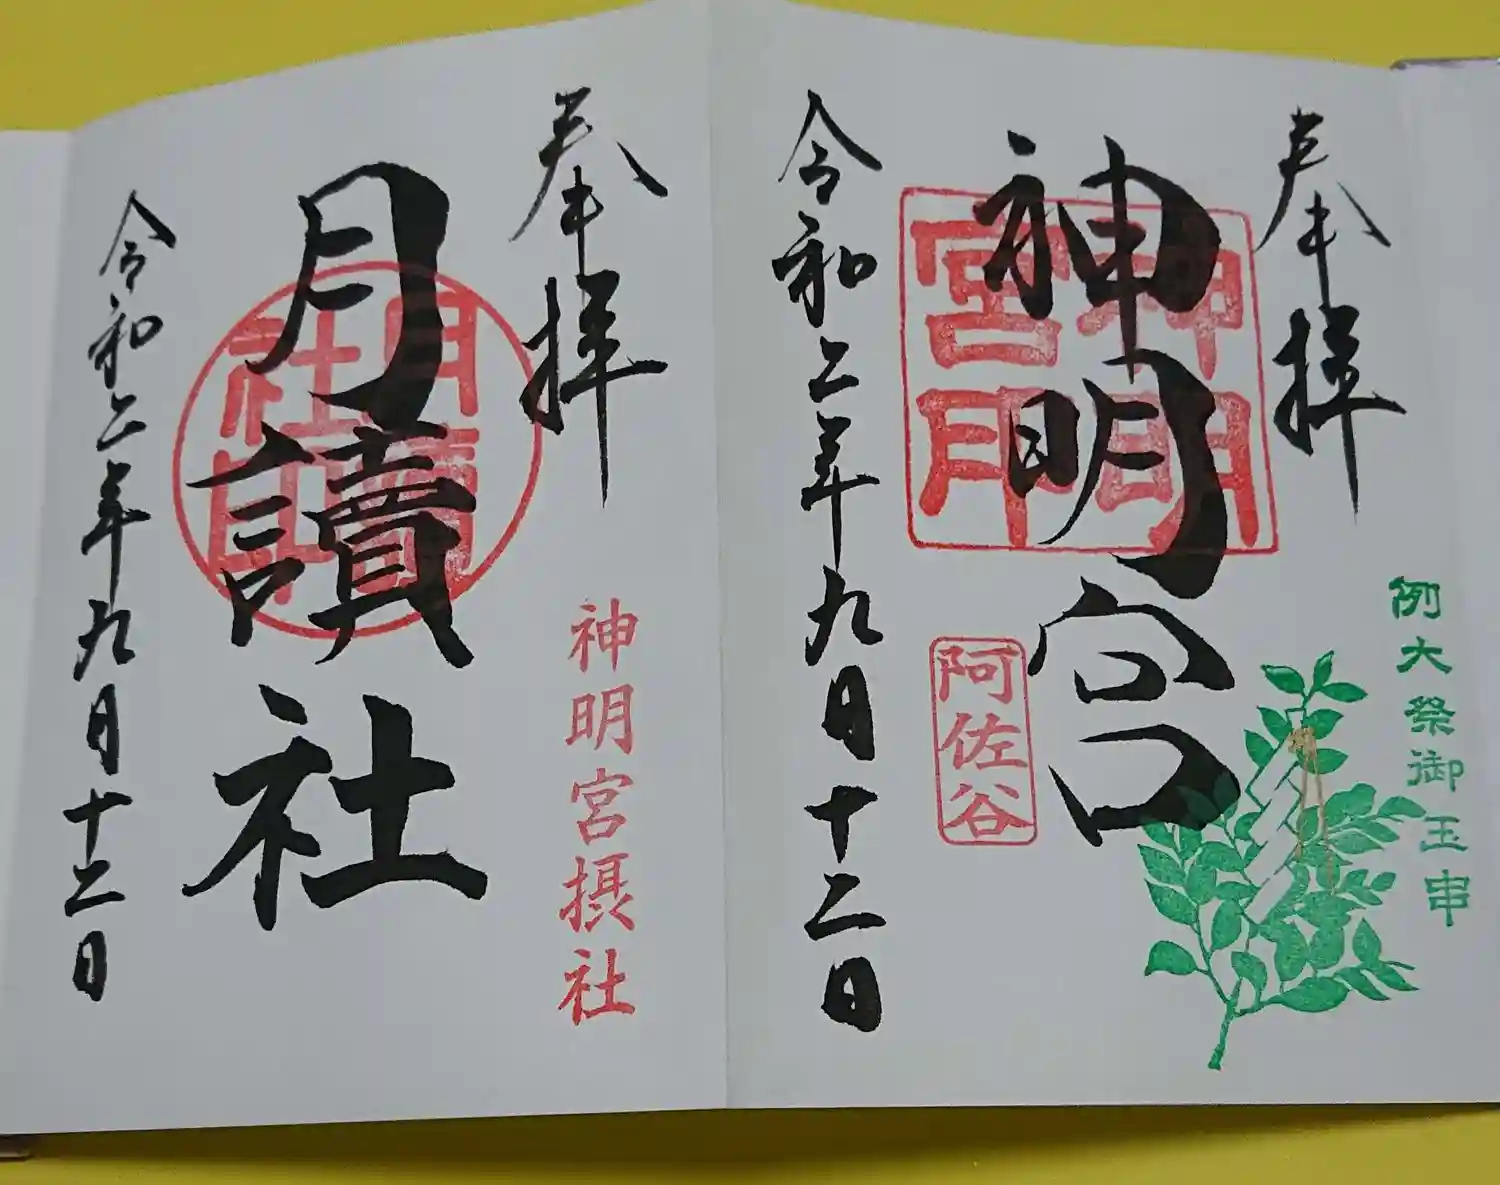 奉拝
神明宮
神明宮印
阿佐谷
例大祭御玉串
令和二年九月十二日
奉拝
月讀社
月讀社印
神明宮摂社
令和二年九月十二日